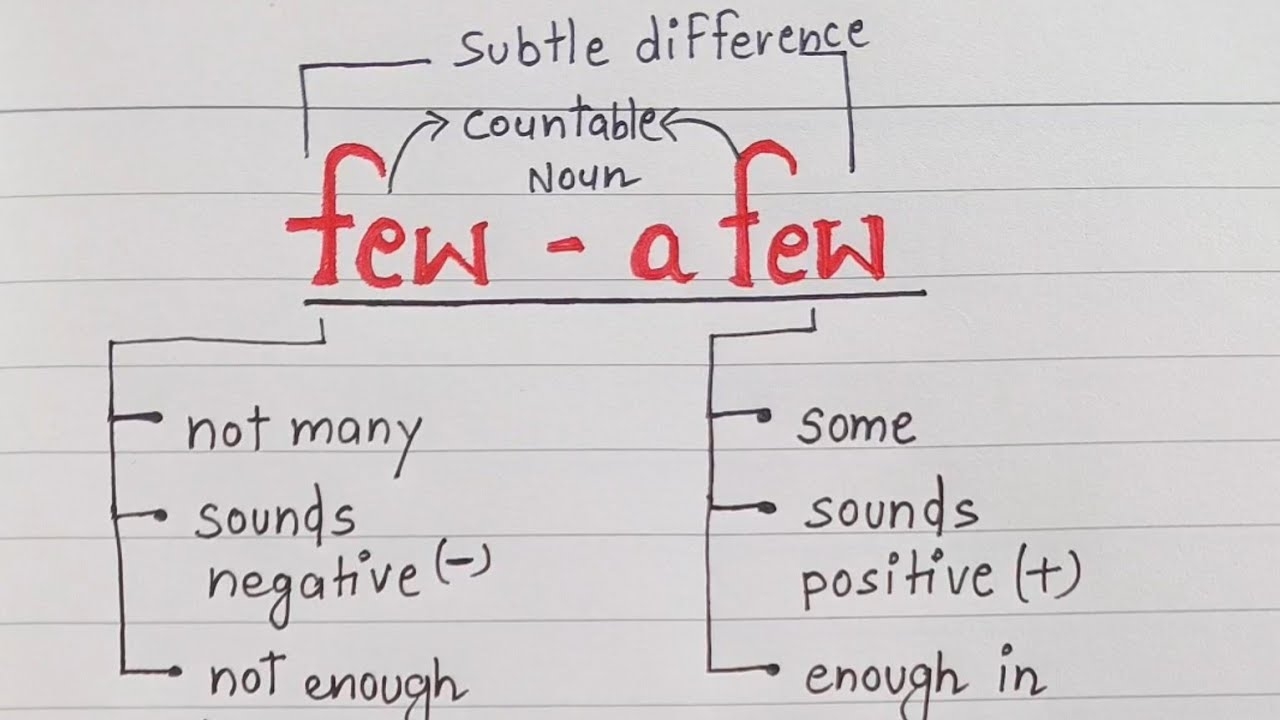 Subtle difference
countable
Noun
few - a few
not many
sounds
negative (-)
not enough
some
sounds
positive (+)
enough in